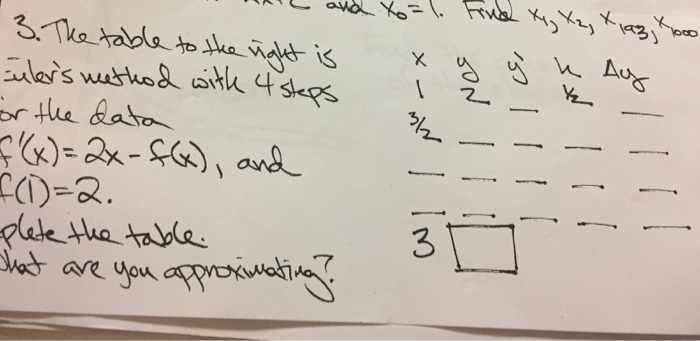 and x₀=1. Find x₁, x₂, x₁₉₃, x₁₀₀₀
3. The table to the right is
Euler's method with 4 steps
or the data
f'(x)=2x-f(x), and
f(1)=2.
plete the table.
hat are you approximating?
x y y' h Δy
1 2 _ ½ _
3/2 _ _ _ _
_ _ _ _ _
_ _ _ _ _
3